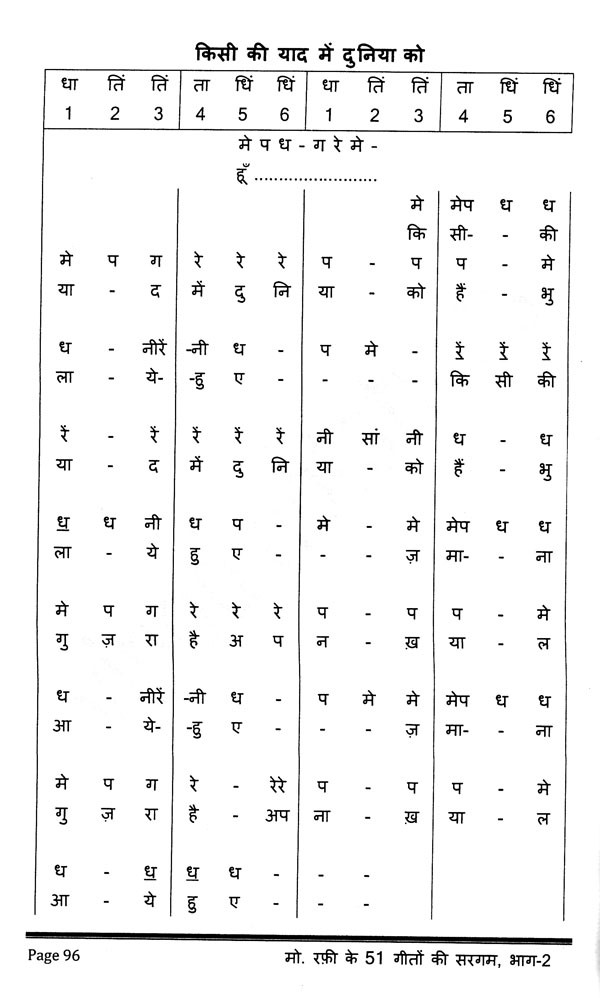 किसी की याद में दुनिया को
धा तिं तिं ता धिं धिं धा तिं तिं ता धिं धिं
1 2 3 4 5 6 1 2 3 4 5 6
मे प ध - ग रे मे -
हूँ ........................
मे मेप ध ध
कि सी- - की
मे प ग रे रे रे प - प प - मे
या - द में दु नि या - को हैं - भु
ध - नीरें -नी ध - प मे - रे॒ं रे॒ं रे॒ं
ला - ये- -हु ए - - - - कि सी की
रें - रें रें रें रें नी सां नी ध - ध
या - द में दु नि या - को हैं - भु
ध॒ ध नी ध प - मे - मे मेप ध ध
ला - ये हु ए - - - ज़ मा- - ना
मे प ग रे रे रे प - प प - मे
गु ज़ रा है अ प न - ख़ या - ल
ध - नीरें -नी ध - प मे मे मेप ध ध
आ - ये- -हु ए - - - ज़ मा- - ना
मे प ग रे - रेरे प - प प - मे
गु ज़ रा है - अप ना - ख़ या - ल
ध - ध॒ ध॒ ध - - - -
आ - ये हु ए - - - -
Page 96 मो. रफ़ी के 51 गीतों की सरगम, भाग-2